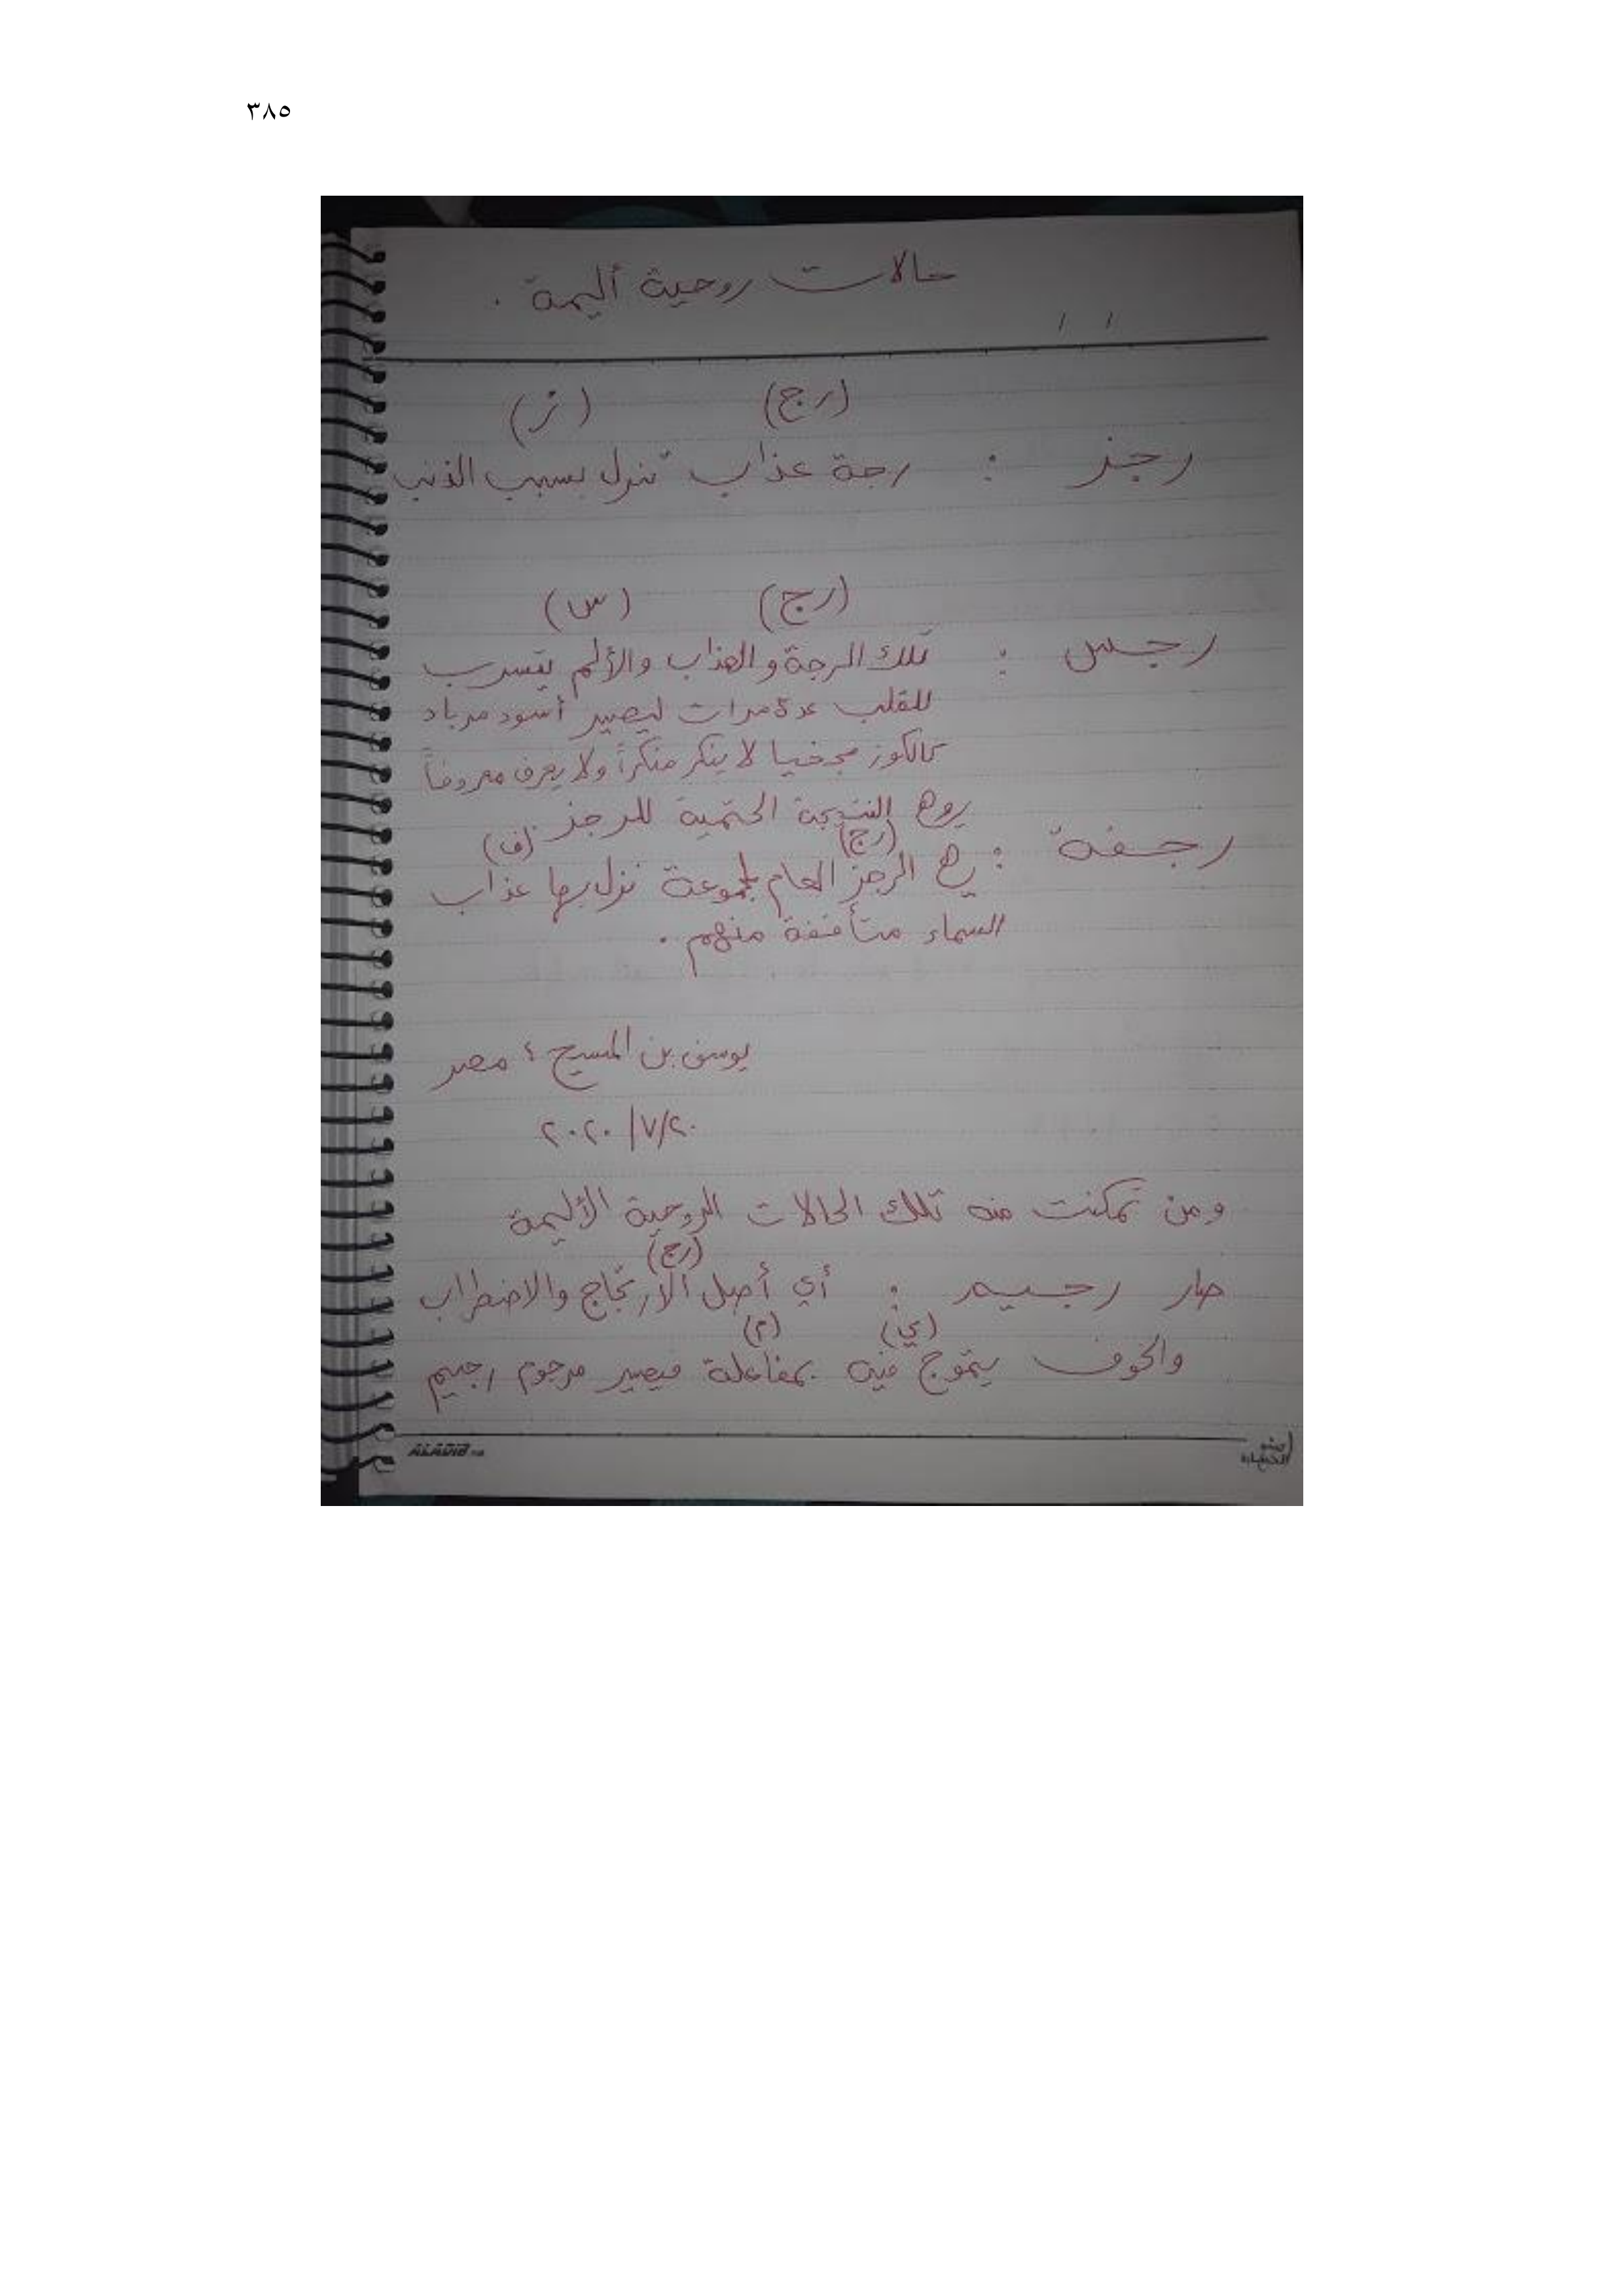 ٣٨٥
حالات روحية أليمة .
/ /
(رج) (ز)
رجز : رجة عذاب تنزل بسبب الذنب
(رج) (س)
رجس : تلك الرجة والعذاب والألم يتسرب
للقلب عدة مرات ليصير أسود مرباد
كالكوز مجخيا لا ينكر منكراً ولا يعرف معروفاً
وهي النتيجة الحتمية للرجز
(رج) (ف)
رجفة : هي الرجز العام لمجموعة نزل بها عذاب
السماء متأففة منهم .
يوسف بن المسيح ؛ مصر
٢٠/٧/٢٠٢٠
ومن تمكنت منه تلك الحالات الروحية الأليمة
(رج)
صار رجيم : أي أصل الارتجاج والاضطراب
(ي) (م)
والخوف يتموج فيه بمفاعلة فيصير مرجوم رجيم
ALADIB